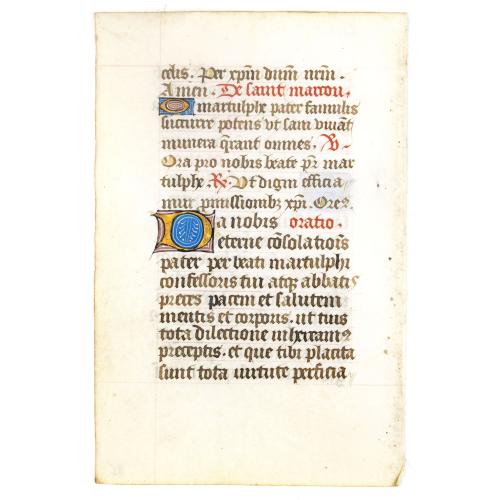 celis. Per xp̄m dūm nr̄m.
Amen. De saint marcou.
O martulphe pater famulis
succure potens vt sani viuāt
munera q̄rant omnes. V.
Ora pro nobis beate pr̄ mar
tulphe. R. Vt digni efficia
mur pmissionibz xp̄i. Ore².
Da nobis oratio.
eterne cōsolatiōis
pater per beati martulphi
confessoris tui atqz abbatis
preces pacem et salutem
mentis et corporis. ut tuis
tota dilectione inheream²
preceptis. et que tibi placita
sunt tota uirtute perficia